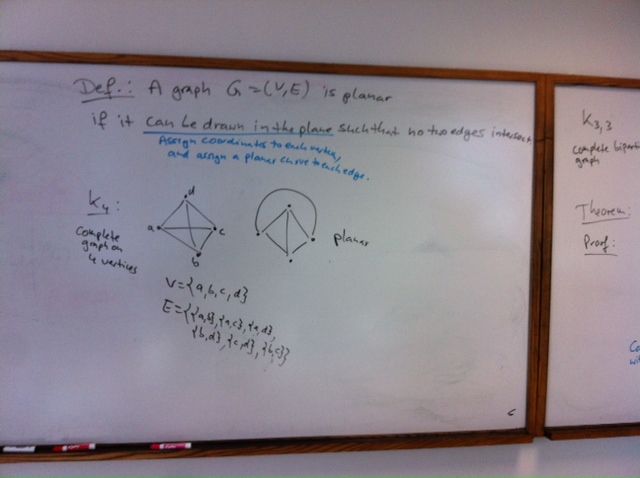 Def.: A graph G=(V,E) is planar
if it can be drawn in the plane such that no two edges intersect
Assign coordinates to each vertex,
and assign a planar curve to each edge.
K4:
complete
graph on
4 vertices
d
a
c
b
planar
V={a,b,c,d}
E={{a,b},{a,c},{a,d},
{b,d},{c,d},{b,c}}
K3,3
complete
graph
Theorem:
Proof: